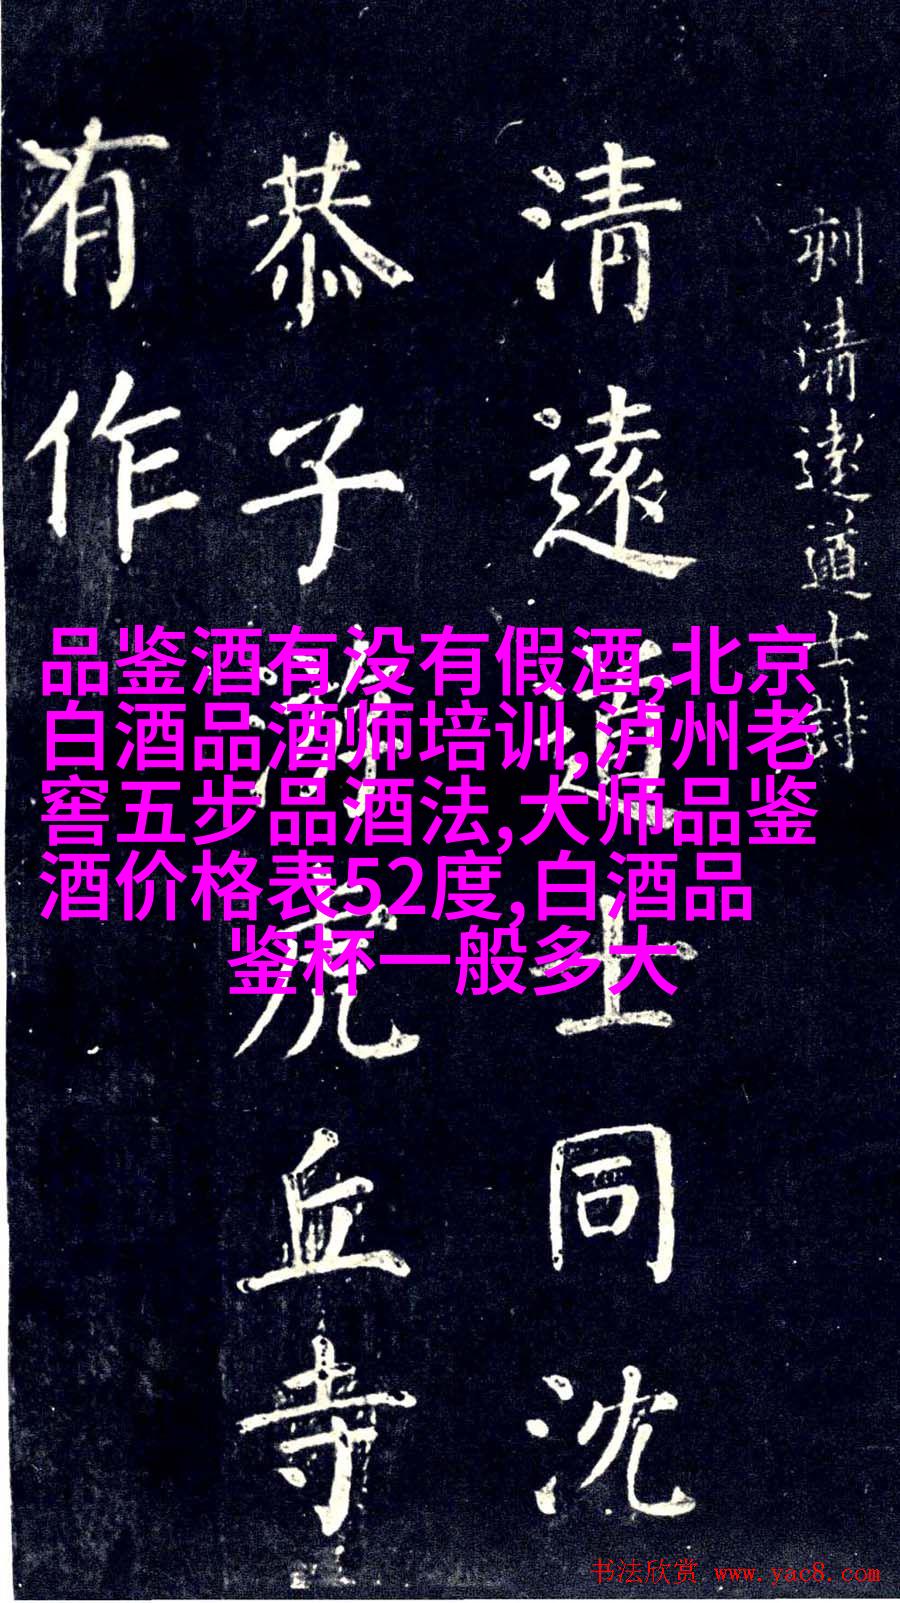 刻清遠道士詩
清遠道士同沈
恭子游虎丘寺
有作
品鉴酒有没有假酒,北京
白酒品酒师培训,泸州老
窖五步品酒法,大师品鉴
酒价格表52度,白酒品
鉴杯一般多大
书法欣赏 www.yac8.com